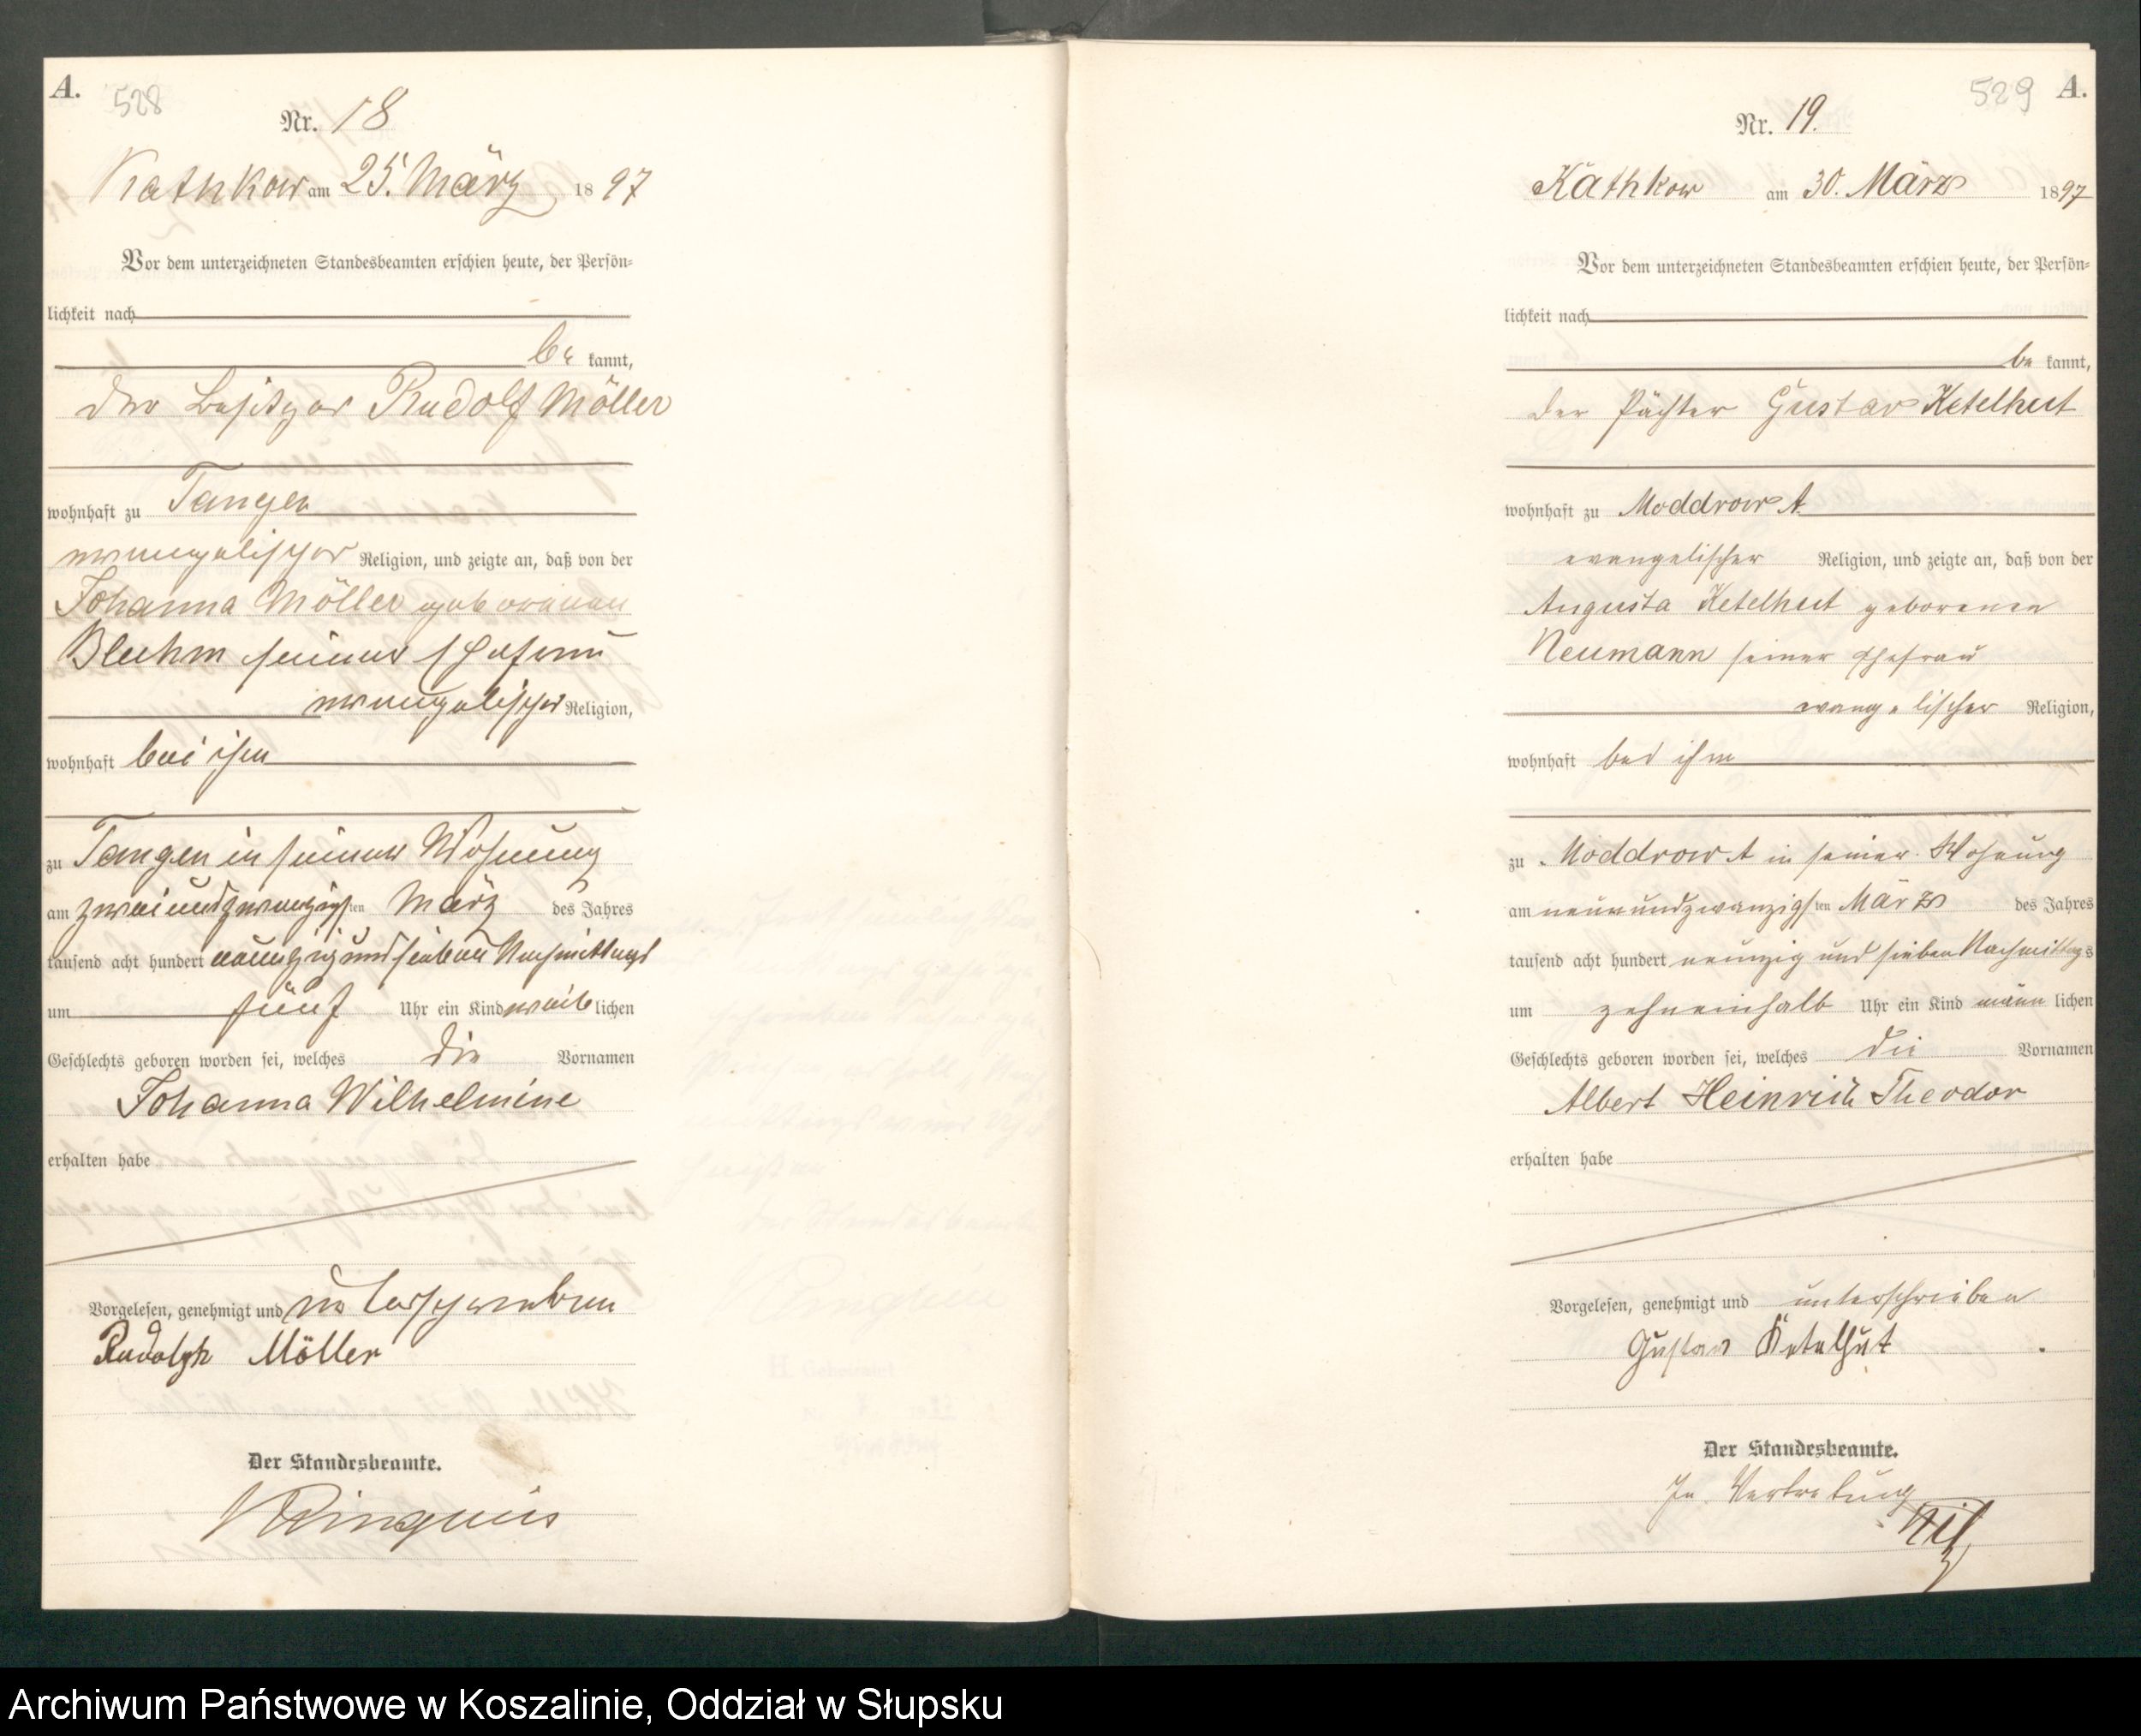 A.
528
Nr. 18
Kathkow am 25. März 1897
Vor dem unterzeichneten Standesbeamten erschien heute, der Persön-
lichkeit nach
be kannt,
der Besitzer Rudolf Möller
wohnhaft zu Tangen
evangelischer Religion, und zeigte an, daß von der
Johanna Möller geborenen
Bluhm seiner Ehefrau
evangelischer Religion,
wohnhaft bei ihm
zu Tangen in seiner Wohnung
am zweiundzwanzigsten März des Jahres
tausend acht hundert neunzig und sieben Nachmittags
um fünf Uhr ein Kind weiblichen
Geschlechts geboren worden sei, welches die Vornamen
Johanna Wilhelmine
erhalten habe
Vorgelesen, genehmigt und unterschrieben
Rudolph Möller
Der Standesbeamte.
529
A.
Nr. 19.
Käthkow am 30. März 1897
Vor dem unterzeichneten Standesbeamten erschien heute, der Persön-
lichkeit nach
be kannt,
der Pächter Gustav Ketelhut
wohnhaft zu Moddrow A.
evangelischer Religion, und zeigte an, daß von der
Augusta Ketelhut geborenen
Neumann seiner Ehefrau
evangelischer Religion,
wohnhaft bei ihm
zu Moddrow A in seiner Wohnung
am neunundzwanzigsten März des Jahres
tausend acht hundert neunzig und sieben Nachmittags
um zehneinhalb Uhr ein Kind männlichen
Geschlechts geboren worden sei, welches die Vornamen
Albert Heinrich Theodor
erhalten habe
Vorgelesen, genehmigt und unterschrieben
Gustav Ketelhut
Der Standesbeamte.
In Vertretung
Archiwum Państwowe w Koszalinie, Oddział w Słupsku